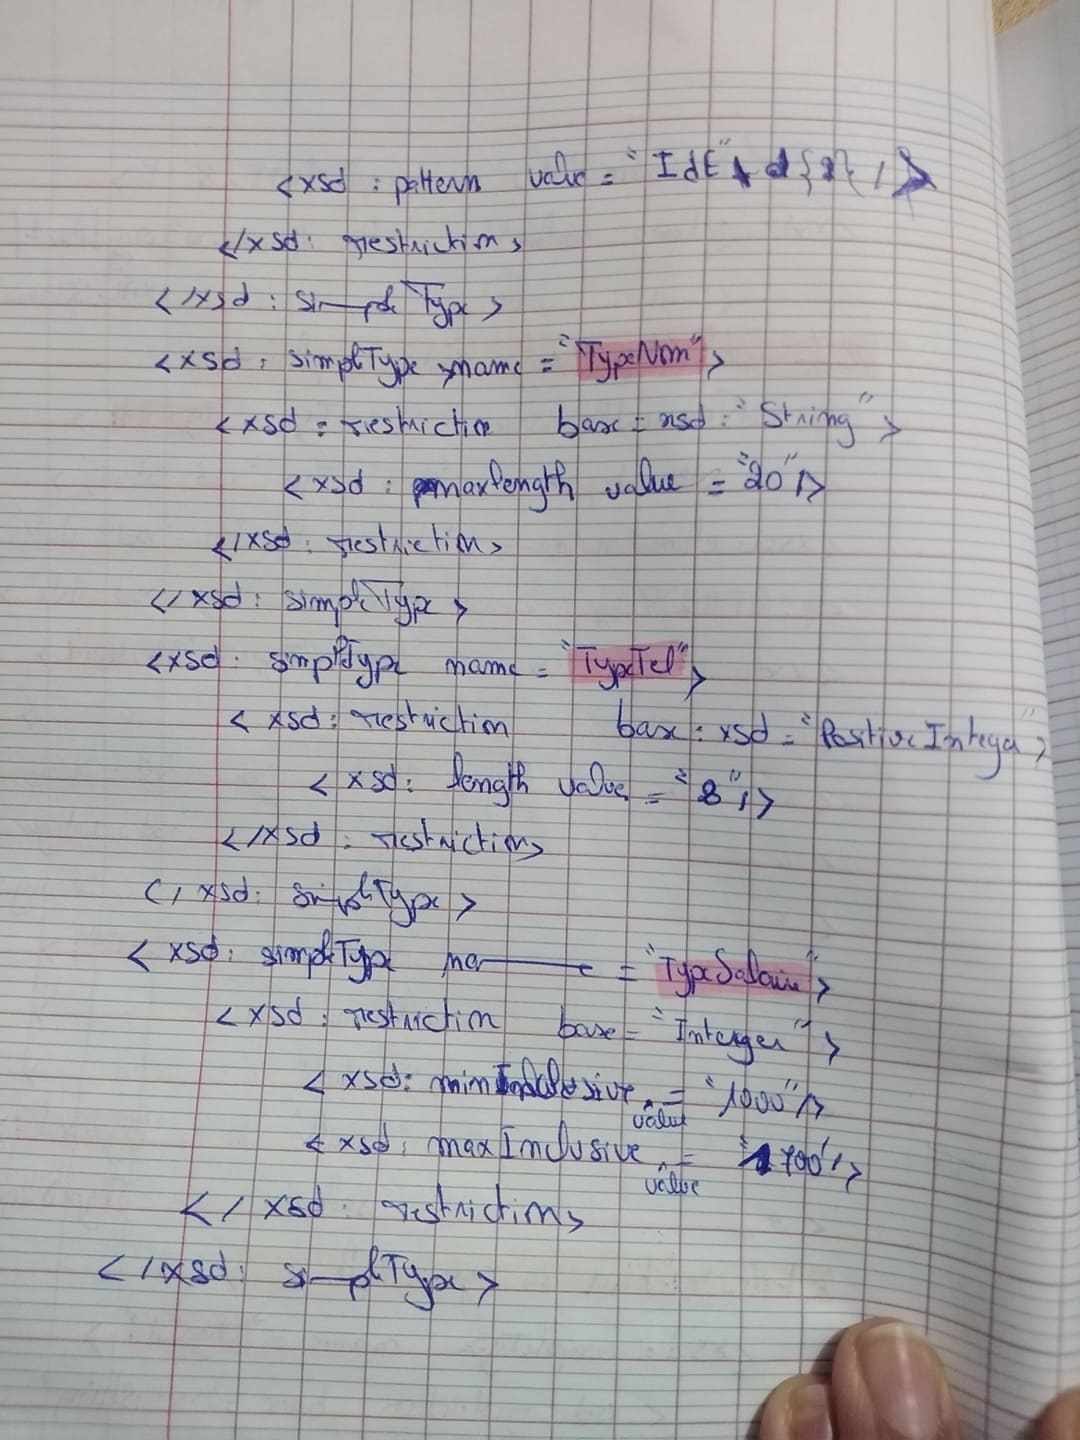 <xsd : pattern value = "IdE" d{2} />
</xsd : restriction>
</xsd : simpleType>
<xsd : simpleType name = "TypeNom">
<xsd : restriction base = xsd : "String">
<xsd : maxlength value = "20"/>
</xsd : restriction>
</xsd : simpleType>
<xsd : simpleType name = "TypeTel">
<xsd : restriction base : xsd = "Positive Integer">
<xsd : length value = "8"/>
</xsd : restriction>
</xsd : simpleType>
<xsd : simpleType na——e = "TypeSalaire">
<xsd : restriction base = "Interger">
<xsd : minInclusive value = "1000"/>
<xsd : maxInclusive value = "1700"/>
</xsd : restriction>
</xsd : simpleType>